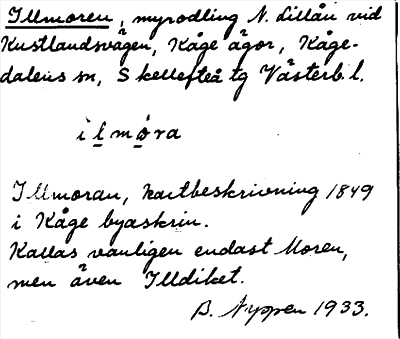 Illmoren, myrodling N. Lillån vid
Kustlandsvägen, Kåge ägor, Kåge-
dalens sn, Skellefteå tg Västerb. l.
ilmora
Illmoran, kartbeskrivning 1849
i Kåge byaskrin.
Kallas vanligen endast Moren,
men även Illdiket.
B. Nyppen 1933.